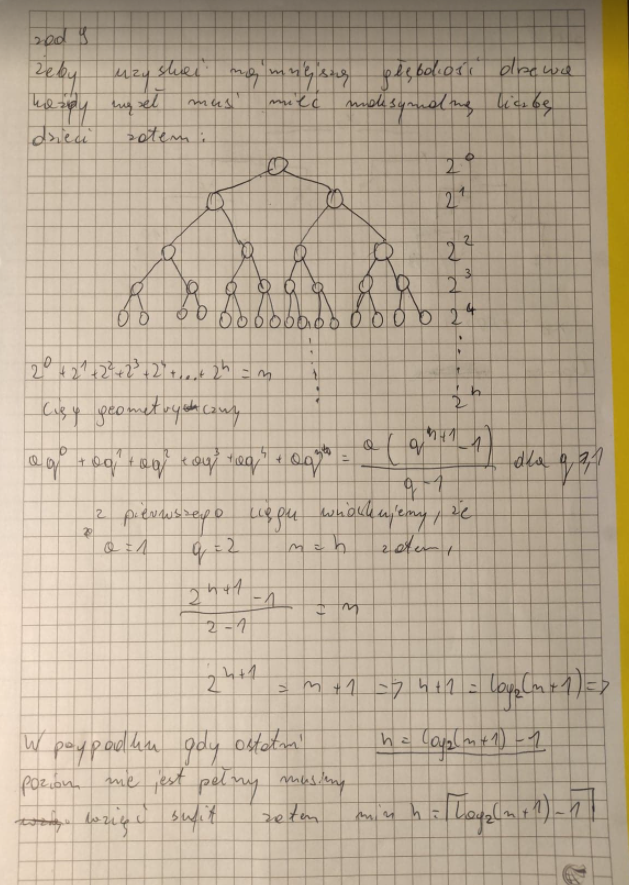 zad 9
żeby uzyskać najmniejszą głębokość drzewa
każdy węzeł musi mieć maksymalną liczbę
dzieci zatem:
2^0
2^1
2^2
2^3
2^4
2^h
2^0 + 2^1 + 2^2 + 2^3 + 2^4 + ... + 2^h = n
Ciąg geometryczny
aq^0 + aq^1 + aq^2 + aq^3 + aq^4 + aq^n = a(q^{n+1} - 1) / (q - 1) dla q ≥ 1
z pierwszego ciągu wnioskujemy, że
a = 1 q = 2 n = h zatem,
(2^{h+1} - 1) / (2 - 1) = n
2^{h+1} = n + 1 => h + 1 = log_2(n+1) =>
h = log_2(n+1) - 1
W przypadku gdy ostatni
poziom nie jest pełny musimy
wziąć sufit zatem min h = ⌈log_2(n+1) - 1⌉